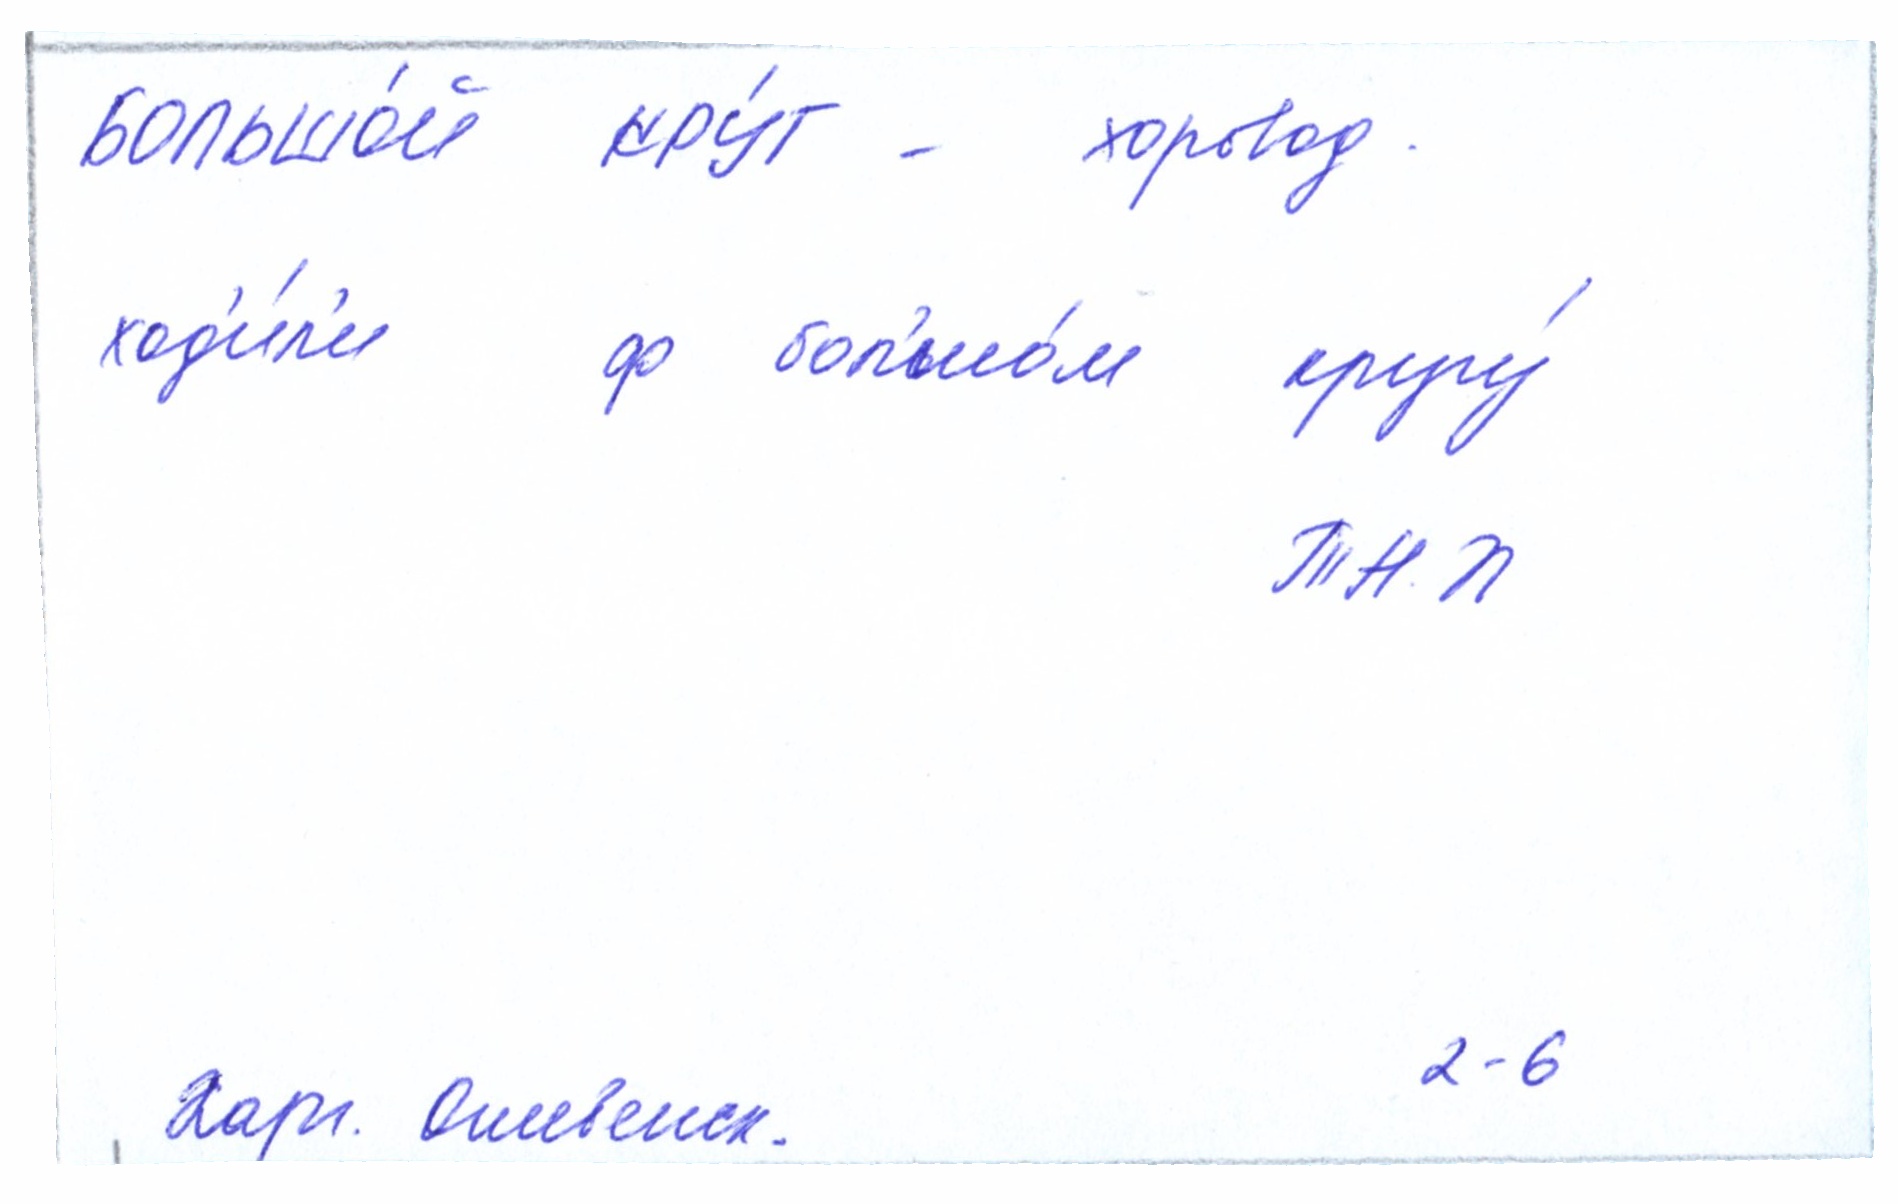 БОЛЬШО́Й КРУ́Г - хоровод.
ход'и́л'и ф бол'шо́м кругу́
ТН.П
2-6
Карг. Ошевенск.